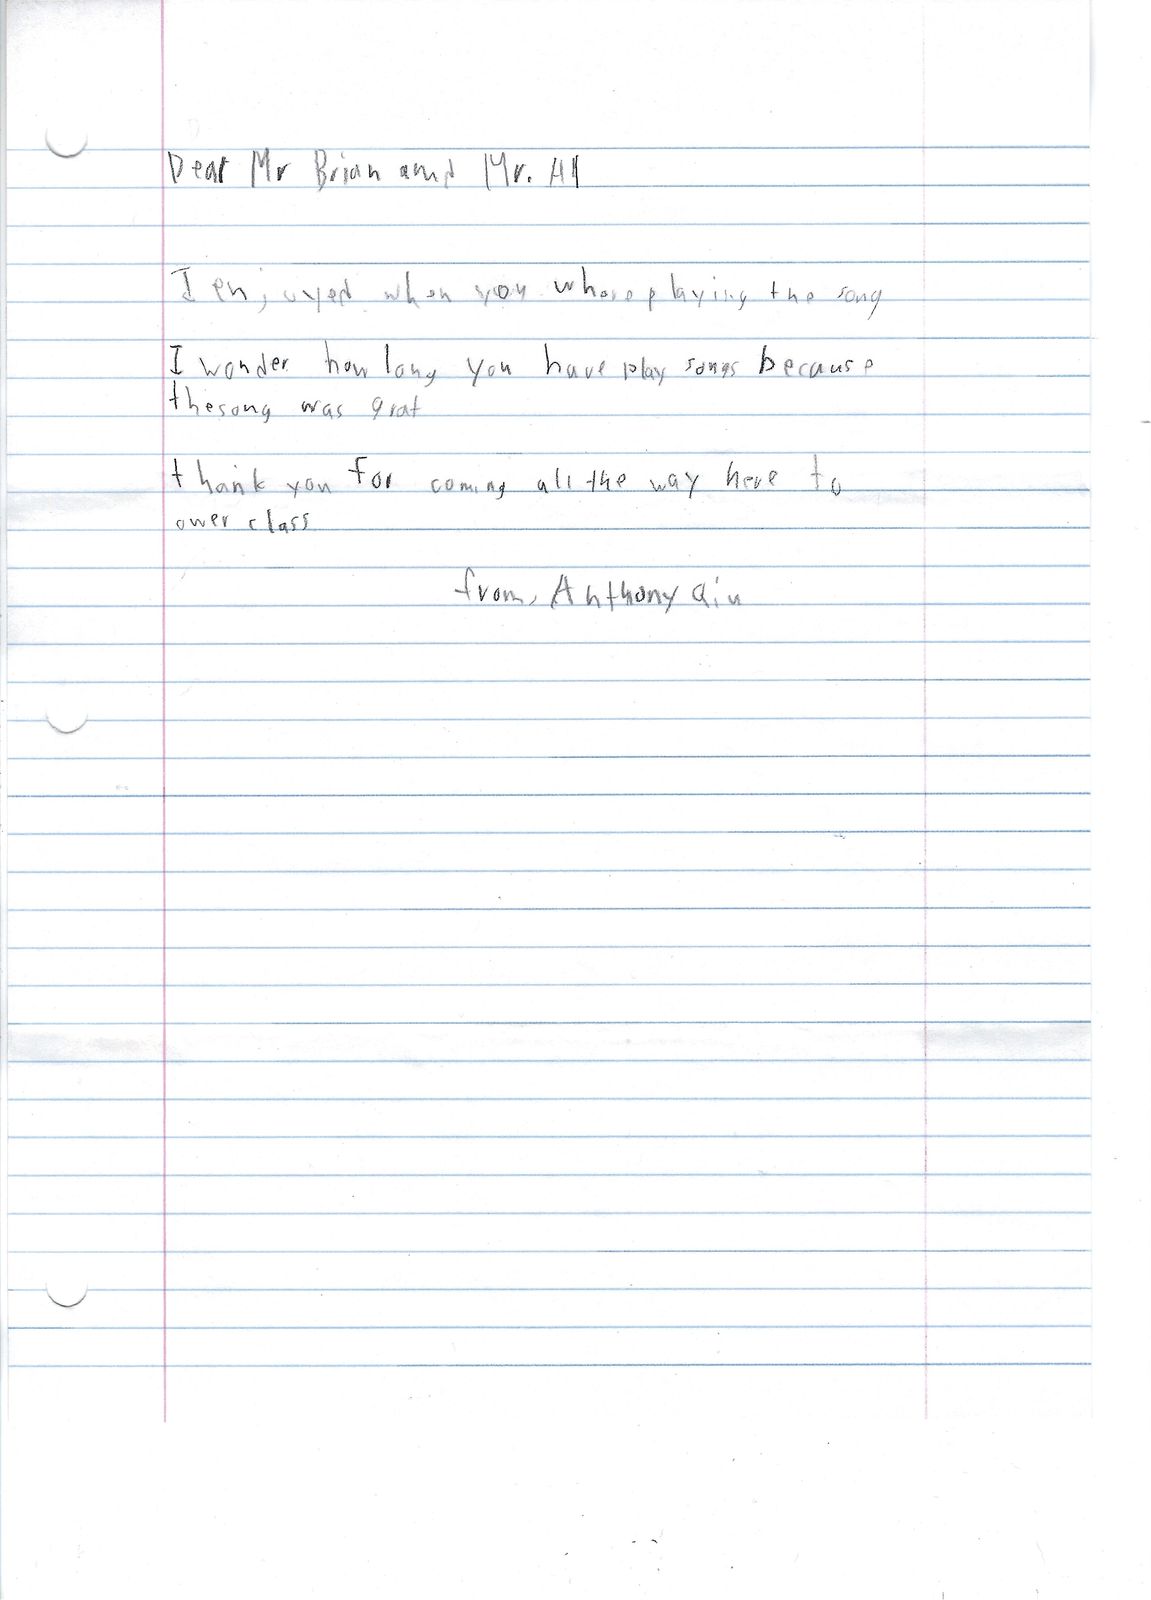 Dear Mr Brian and Mr. Al
I enjoyed when you whore playing the song
I wonder how long you have play songs because
thesong was grat
thank you for coming all the way here to
ower class
from, Anthony Qiu